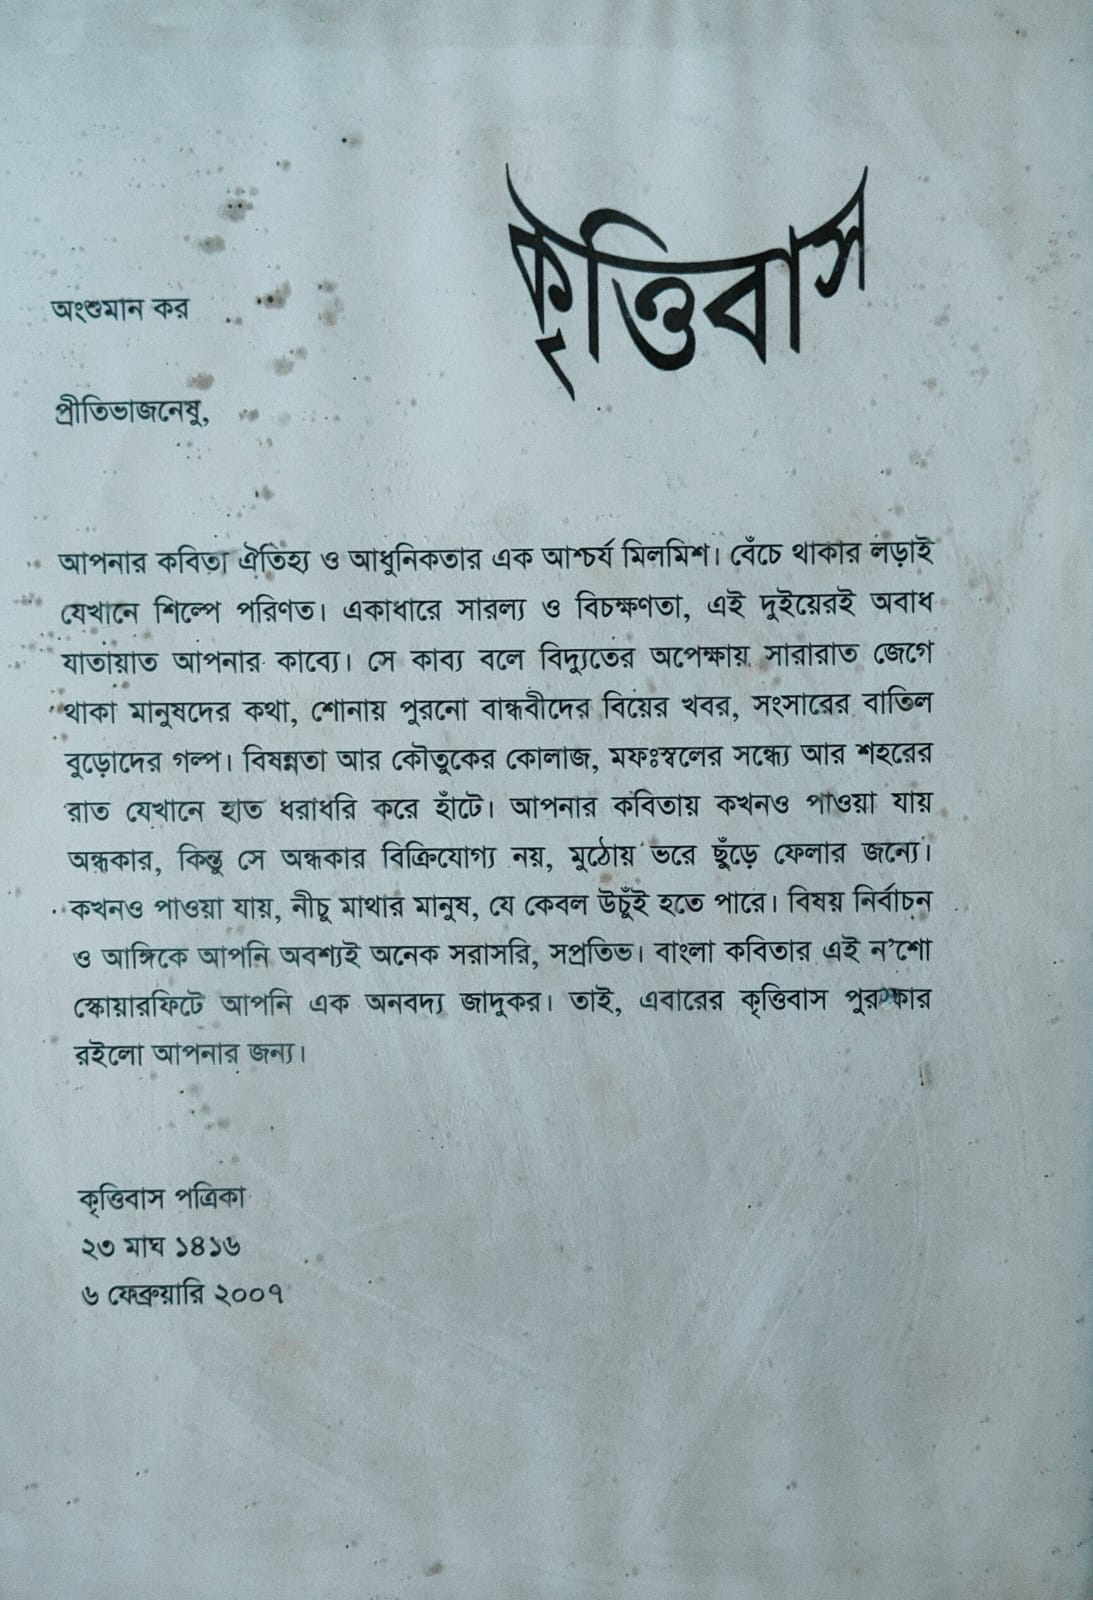 কৃত্তিবাস
অংশুমান কর
প্রীতিভাজনেষু,
আপনার কবিতা ঐতিহ্য ও আধুনিকতার এক আশ্চর্য মিলমিশ। বেঁচে থাকার লড়াই
যেখানে শিল্পে পরিণত। একাধারে সারল্য ও বিচক্ষণতা, এই দুইয়েরই অবাধ
যাতায়াত আপনার কাব্যে। সে কাব্য বলে বিদ্যুতের অপেক্ষায় সারারাত জেগে
থাকা মানুষদের কথা, শোনায় পুরনো বান্ধবীদের বিয়ের খবর, সংসারের বাতিল
বুড়োদের গল্প। বিষন্নতা আর কৌতুকের কোলাজ, মফঃস্বলের সন্ধ্যে আর শহরের
রাত যেখানে হাত ধরাধরি করে হাঁটে। আপনার কবিতায় কখনও পাওয়া যায়
অন্ধকার, কিন্তু সে অন্ধকার বিক্রিযোগ্য নয়, মুঠোয় ভরে ছুঁড়ে ফেলার জন্যে।
কখনও পাওয়া যায়, নীচু মাথার মানুষ, যে কেবল উচুঁই হতে পারে। বিষয় নির্বাচন
ও আঙ্গিকে আপনি অবশ্যই অনেক সরাসরি, সপ্রতিভ। বাংলা কবিতার এই ন'শো
স্কোয়ারফিটে আপনি এক অনবদ্য জাদুকর। তাই, এবারের কৃত্তিবাস পুরস্কার
রইলো আপনার জন্য।
কৃত্তিবাস পত্রিকা
২৩ মাঘ ১৪১৬
৬ ফেব্রুয়ারি ২০০৭